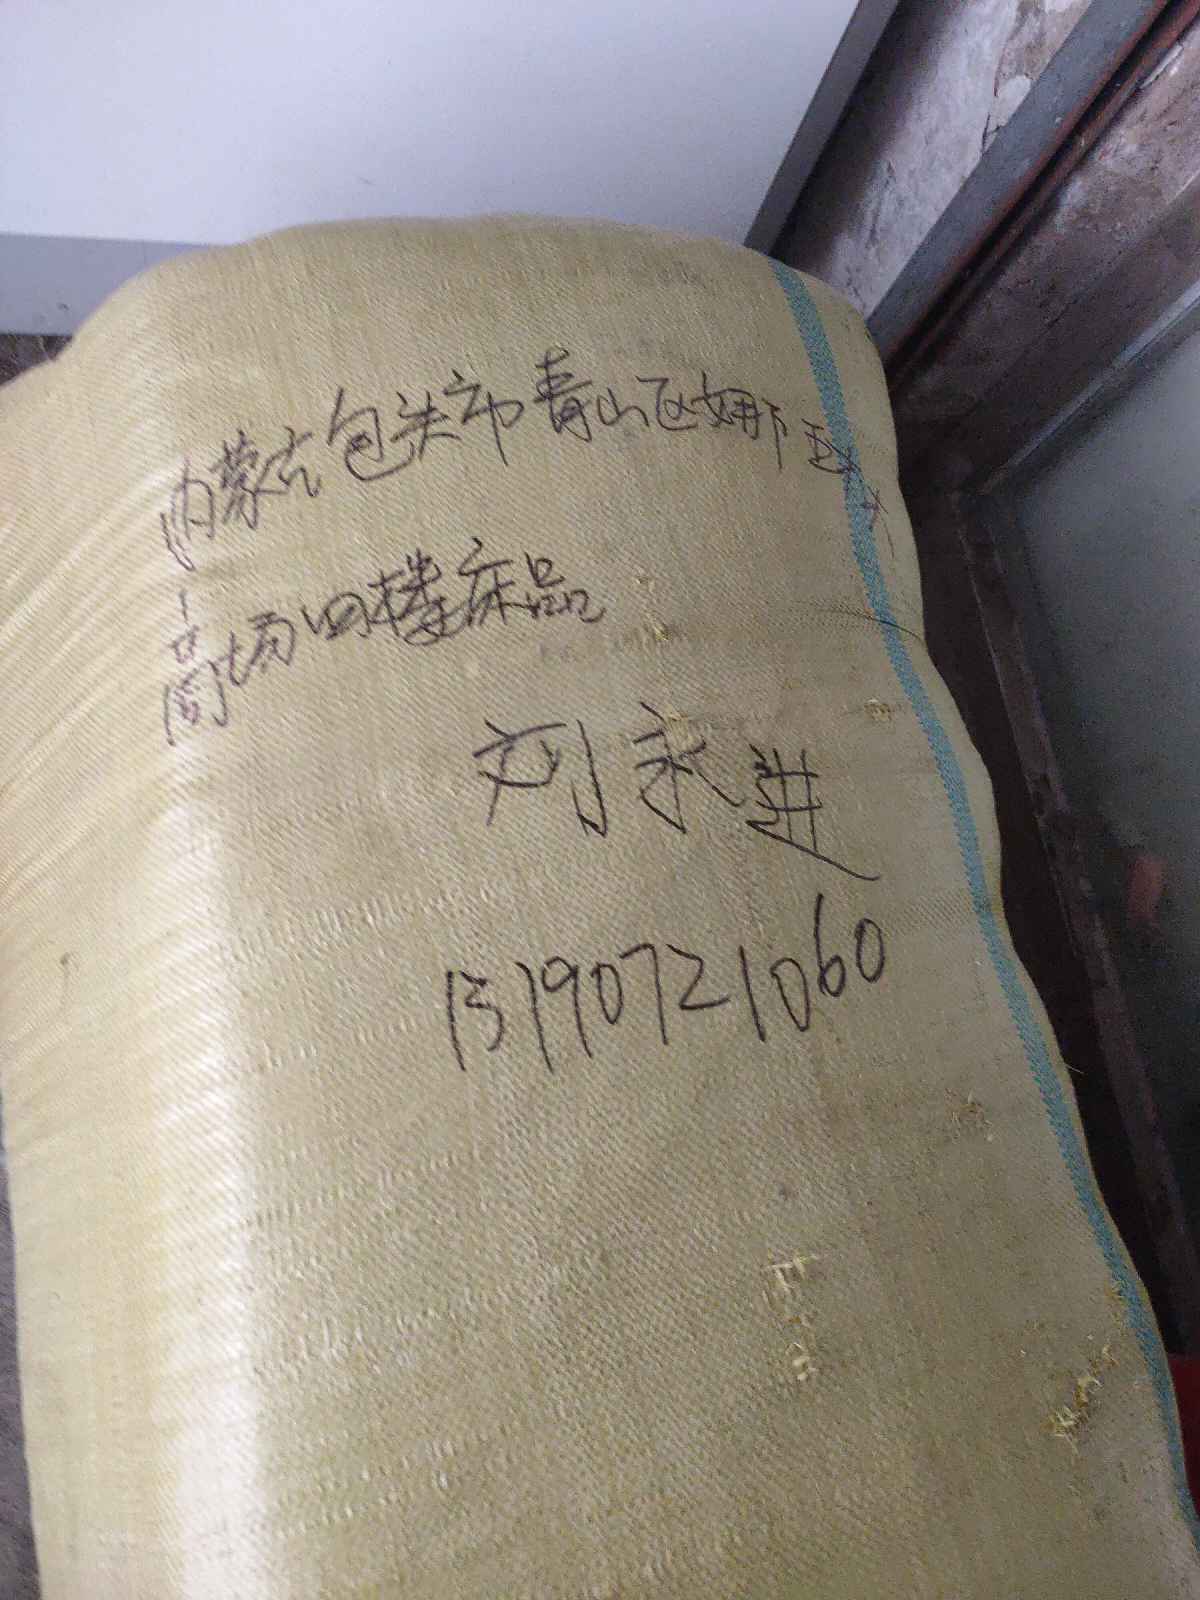 内蒙古包头市青山区娜琳
商场四楼床品
刘永进
15190721060